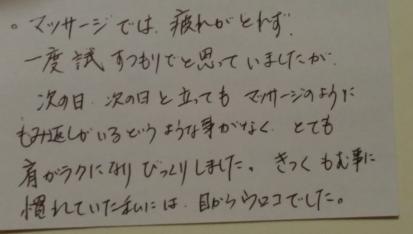 。マッサージでは、疲れがとれず、
一度試すつもりでと思っていましたが、
次の日、次の日と立っても マッサージのように
もみ返しがいるというような事がなく、とても
肩がラクになり びっくりしました。きつくもむ事に
慣れていた私には、目からウロコでした。